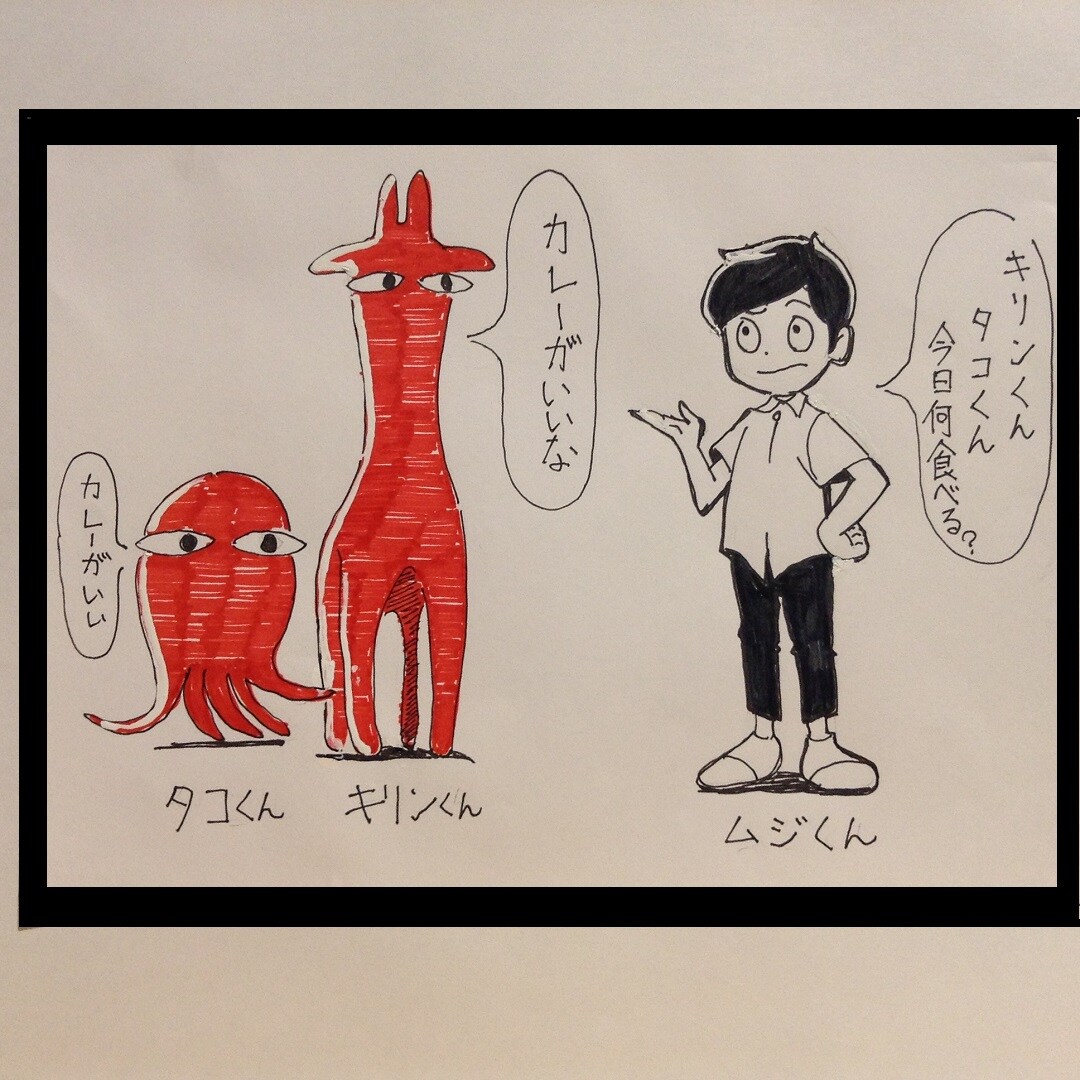 キリンくん
タコくん
今日何食べる?
カレーがいいな
カレーがいい
タコくん
キリンくん
ムジくん